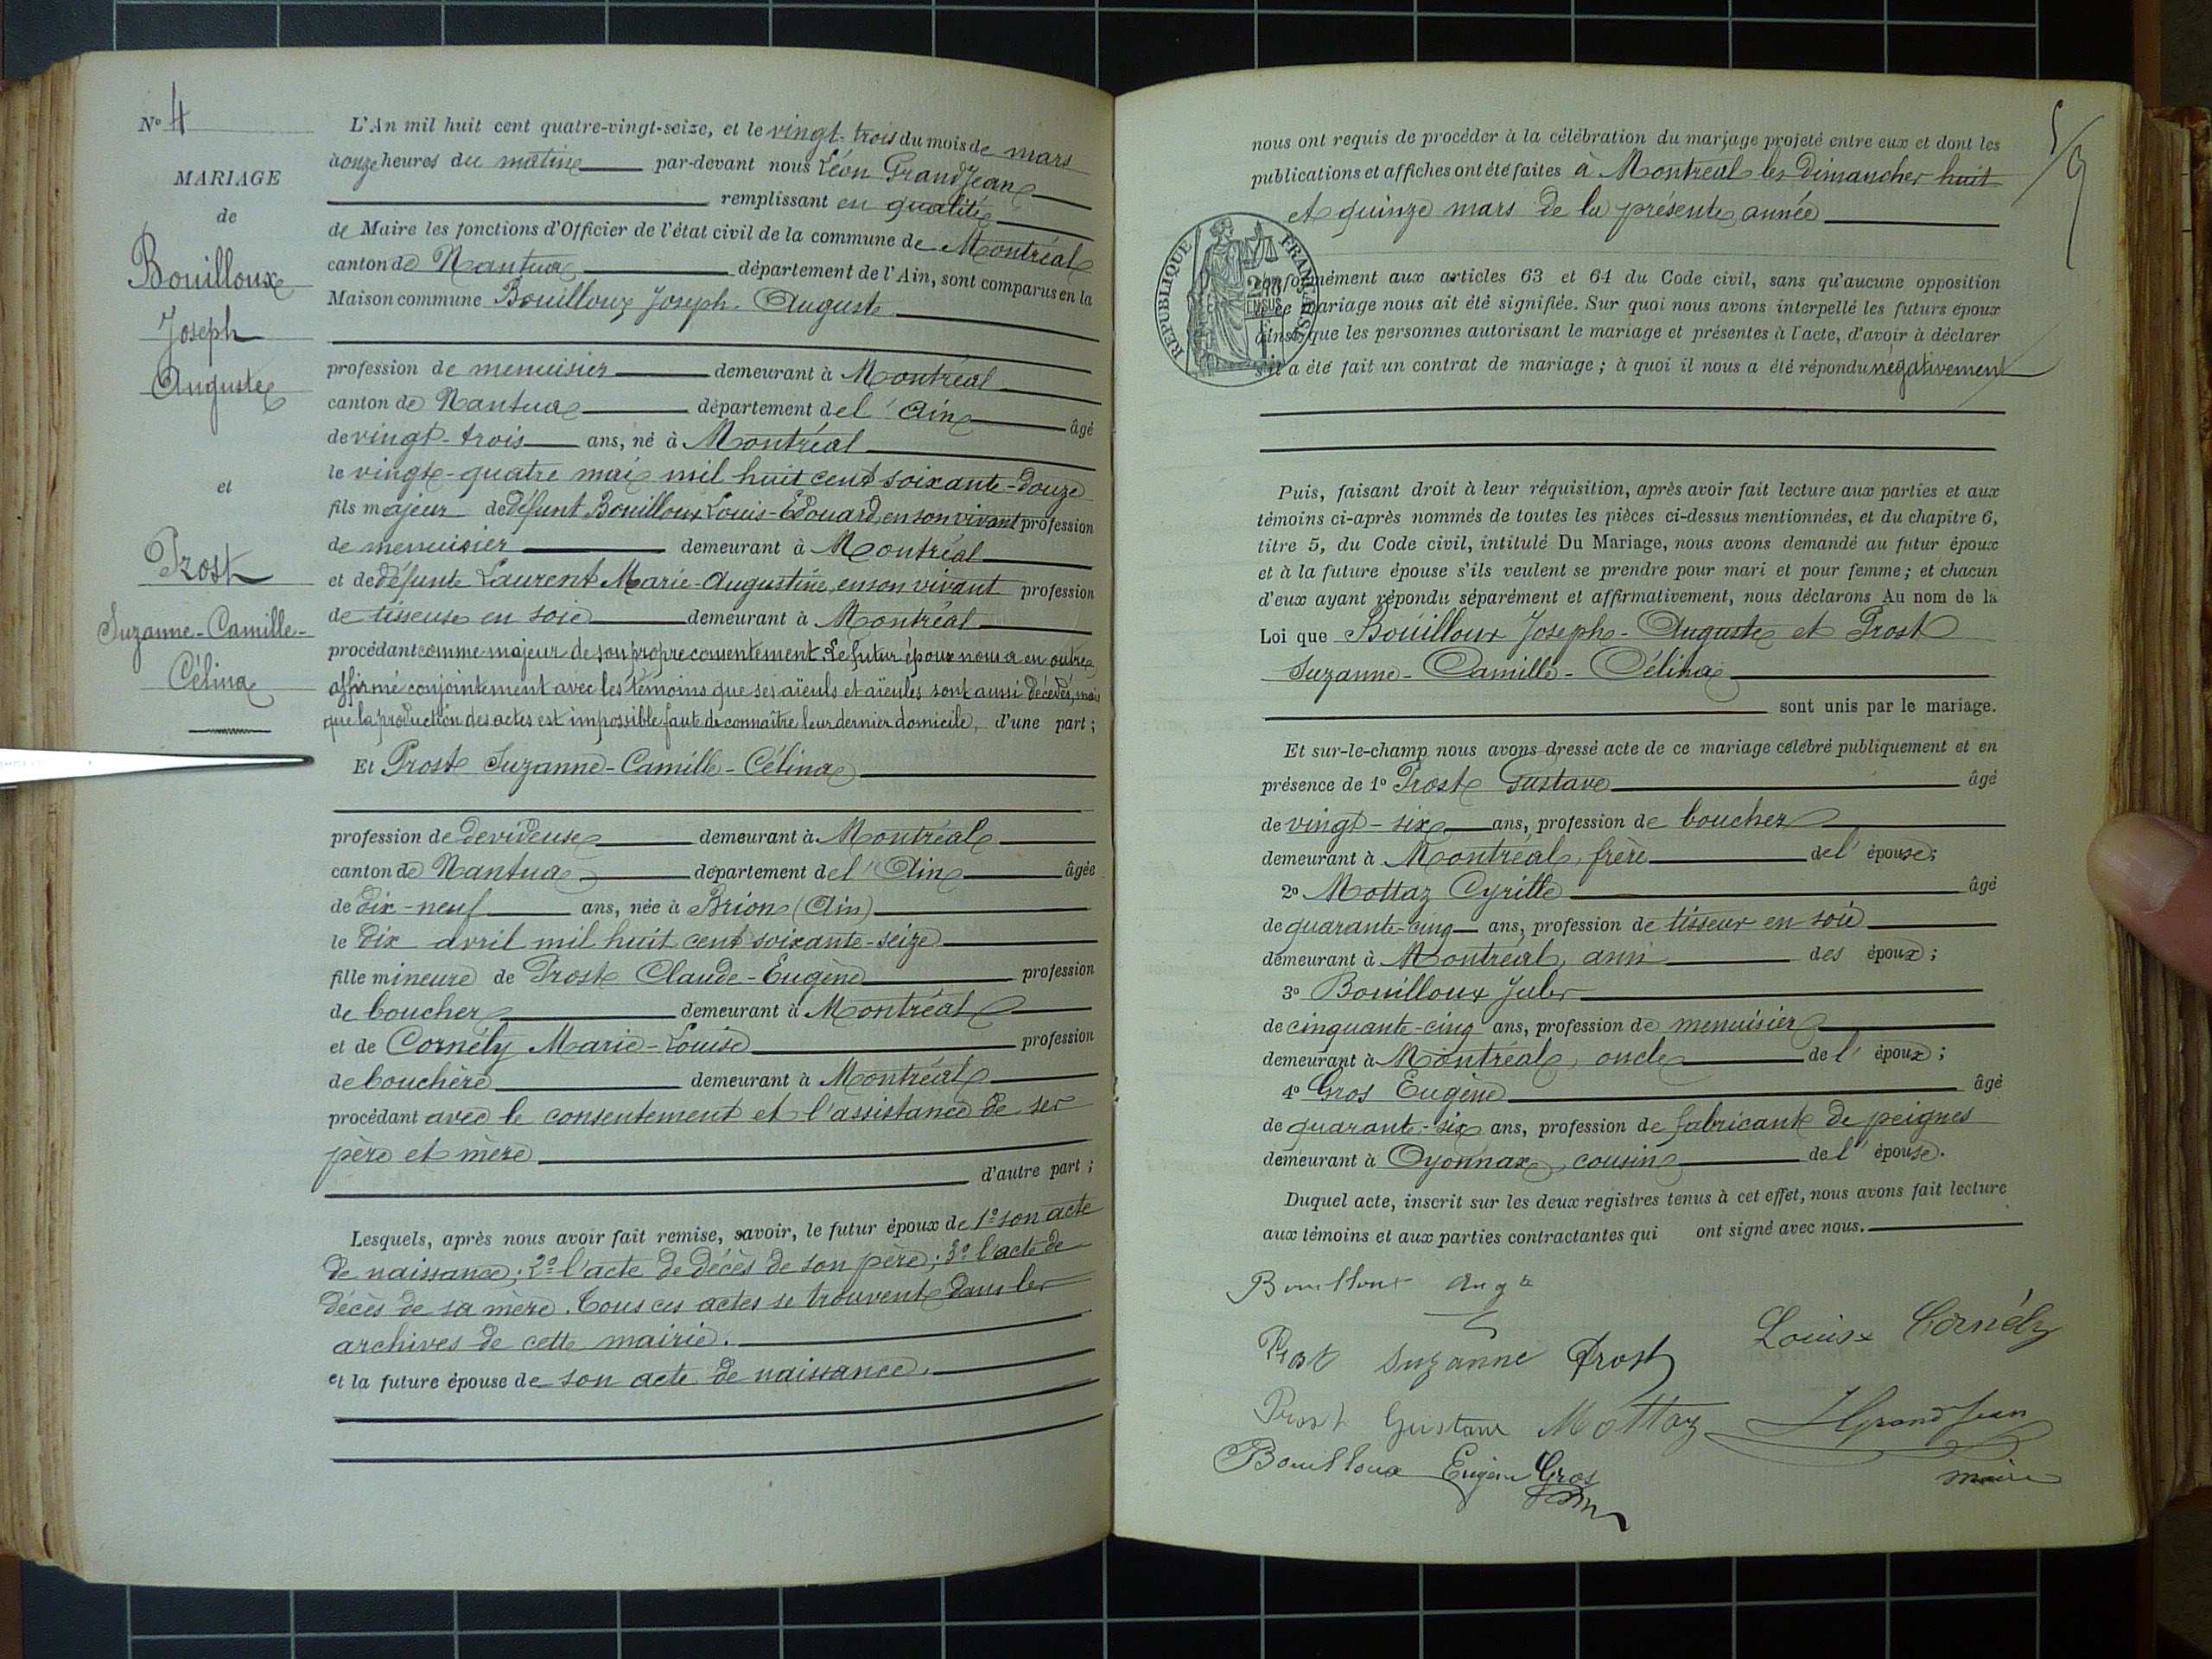 N° 4
MARIAGE
de
Bouilloux
Joseph
Auguste
et
Prost
Suzanne-Camille-
Célina
L'An mil huit cent quatre-vingt-seize, et le vingt-trois du mois de mars
à onze heures du matin par-devant nous Léon Grandjean
remplissant en qualité
de Maire les fonctions d'Officier de l'état civil de la commune de Montréal
canton de Nantua département de l'Ain, sont comparus en la
Maison commune Bouilloux Joseph-Auguste
profession de menuisier demeurant à Montréal
canton de Nantua département de l'Ain âgé
de vingt-trois ans, né à Montréal
le vingt-quatre mai mil huit cent soixante-douze
fils majeur de défunt Bouilloux Louis-Edouard, en son vivant profession
de menuisier demeurant à Montréal
et de défunte Laurent Marie-Augustine, en son vivant profession
de tisseuse en soie demeurant à Montréal
procédant comme majeur de son propre consentement. Le futur époux nous a en outre
affirmé conjointement avec les témoins que ses aïeuls et aïeules sont aussi décédés, mais
que la production des actes est impossible faute de connaître leur dernier domicile, d'une part;
Et Prost Suzanne-Camille-Célina
profession de devideuse demeurant à Montréal
canton de Nantua département de l'Ain âgée
de dix-neuf ans, née à Brion (Ain)
le dix avril mil huit cent soixante-seize
fille mineure de Prost Claude-Eugène profession
de boucher demeurant à Montréal
et de Cornély Marie-Louise profession
de bouchère demeurant à Montréal
procédant avec le consentement et l'assistance de ses
père et mère
d'autre part;
Lesquels, après nous avoir fait remise, savoir, le futur époux de 1° son acte
de naissance; 2° l'acte de décès de son père; 3° l'acte de
décès de sa mère. Tous ces actes se trouvent dans les
archives de cette mairie.
et la future épouse de son acte de naissance.
nous ont requis de procéder à la célébration du mariage projeté entre eux et dont les
publications et affiches ont été faites à Montréal les Dimanches huit
et quinze mars de la présente année
RÉPUBLIQUE FRANÇAISE
conformément aux articles 63 et 64 du Code civil, sans qu'aucune opposition
à ce mariage nous ait été signifiée. Sur quoi nous avons interpellé les futurs époux
ainsi que les personnes autorisant le mariage et présentes à l'acte, d'avoir à déclarer
s'il a été fait un contrat de mariage; à quoi il nous a été répondu négativement
Puis, faisant droit à leur réquisition, après avoir fait lecture aux parties et aux
témoins ci-après nommés de toutes les pièces ci-dessus mentionnées, et du chapitre 6,
titre 5, du Code civil, intitulé Du Mariage, nous avons demandé au futur époux
et à la future épouse s'ils veulent se prendre pour mari et pour femme; et chacun
d'eux ayant répondu séparément et affirmativement, nous déclarons Au nom de la
Loi que Bouilloux Joseph-Auguste et Prost
Suzanne-Camille-Célina
sont unis par le mariage.
Et sur-le-champ nous avons dressé acte de ce mariage célébré publiquement et en
présence de 1° Prost Gustave âgé
de vingt-six ans, profession de boucher
demeurant à Montréal, frère de l'épouse;
2° Mottaz Cyrille âgé
de quarante-cinq ans, profession de tisseur en soie
demeurant à Montréal, ami des époux;
3° Bouilloux Jules
de cinquante-cinq ans, profession de menuisier
demeurant à Montréal, oncle de l'époux;
4° Gros Eugène âgé
de quarante-six ans, profession de fabricant de peignes
demeurant à Oyonnax, cousin de l'épouse.
Duquel acte, inscrit sur les deux registres tenus à cet effet, nous avons fait lecture
aux témoins et aux parties contractantes qui ont signé avec nous.
Bouilloux Aug te
Louise Cornély
Prost Suzanne Prost
Prost Gustave Mottaz LGrandjean
Bouilloux Eugène Gros
maire